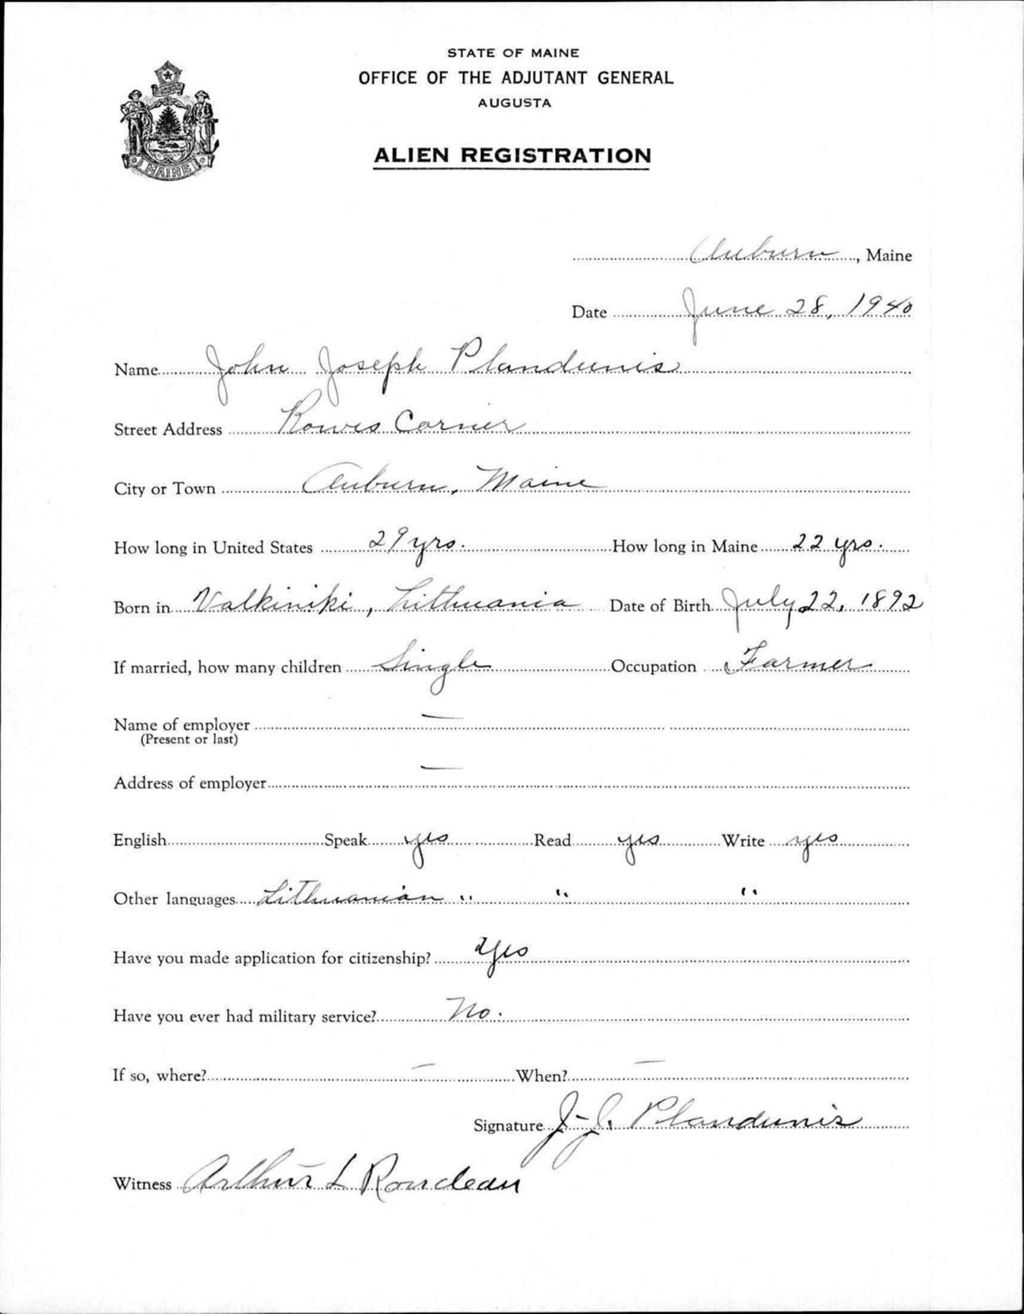 STATE OF MAINE
OFFICE OF THE ADJUTANT GENERAL
AUGUSTA
ALIEN REGISTRATION
MAINE
Auburn, Maine
Date June 28, 1940
Name John Joseph Plandunis
Street Address Rowes Corner
City or Town Auburn, Maine
How long in United States 29 yrs. How long in Maine 22 yrs.
Born in Valkiniki, Lithuania Date of Birth July 22, 1892
If married, how many children Single Occupation Farmer
Name of employer —
(Present or last)
Address of employer —
English Speak yes Read yes Write yes
Other languages Lithuanian " " "
Have you made application for citizenship? Yes
Have you ever had military service? No.
If so, where? — When? —
Signature J-J. Plandunis
Witness Arthur L Rondeau